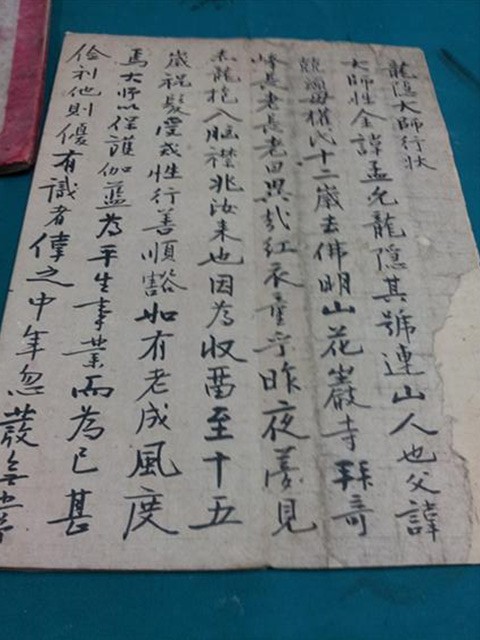 龍隱大師行狀
大師姓金諱孟允龍隱其號連山人也父諱
競渊母權氏十二歲去佛明山花巖寺拜奇
峰長老長老曰異哉紅衣童乎昨夜夢見
赤龍抱入胸襟兆汝来也因為收畜至十五
歲祝髮受戒性行善順豁如有老成風度
焉大師以保護伽藍為平生事業而為己甚
儉利他則優有識者偉之中年忽發